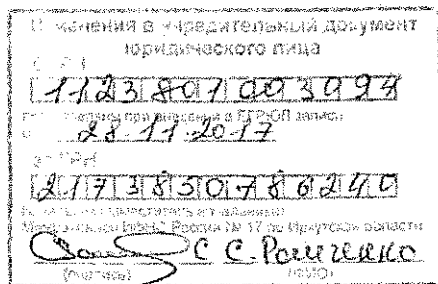 Изменения в учредительный документ
юридического лица
ОГРН
1123801003094
при внесении в ЕГРЮЛ записи
28.11.2017
за ГРН
2173850786240
Межрайонной ИФНС России № 17 по Иркутской области
С.С.
(подпись) (ФИО)